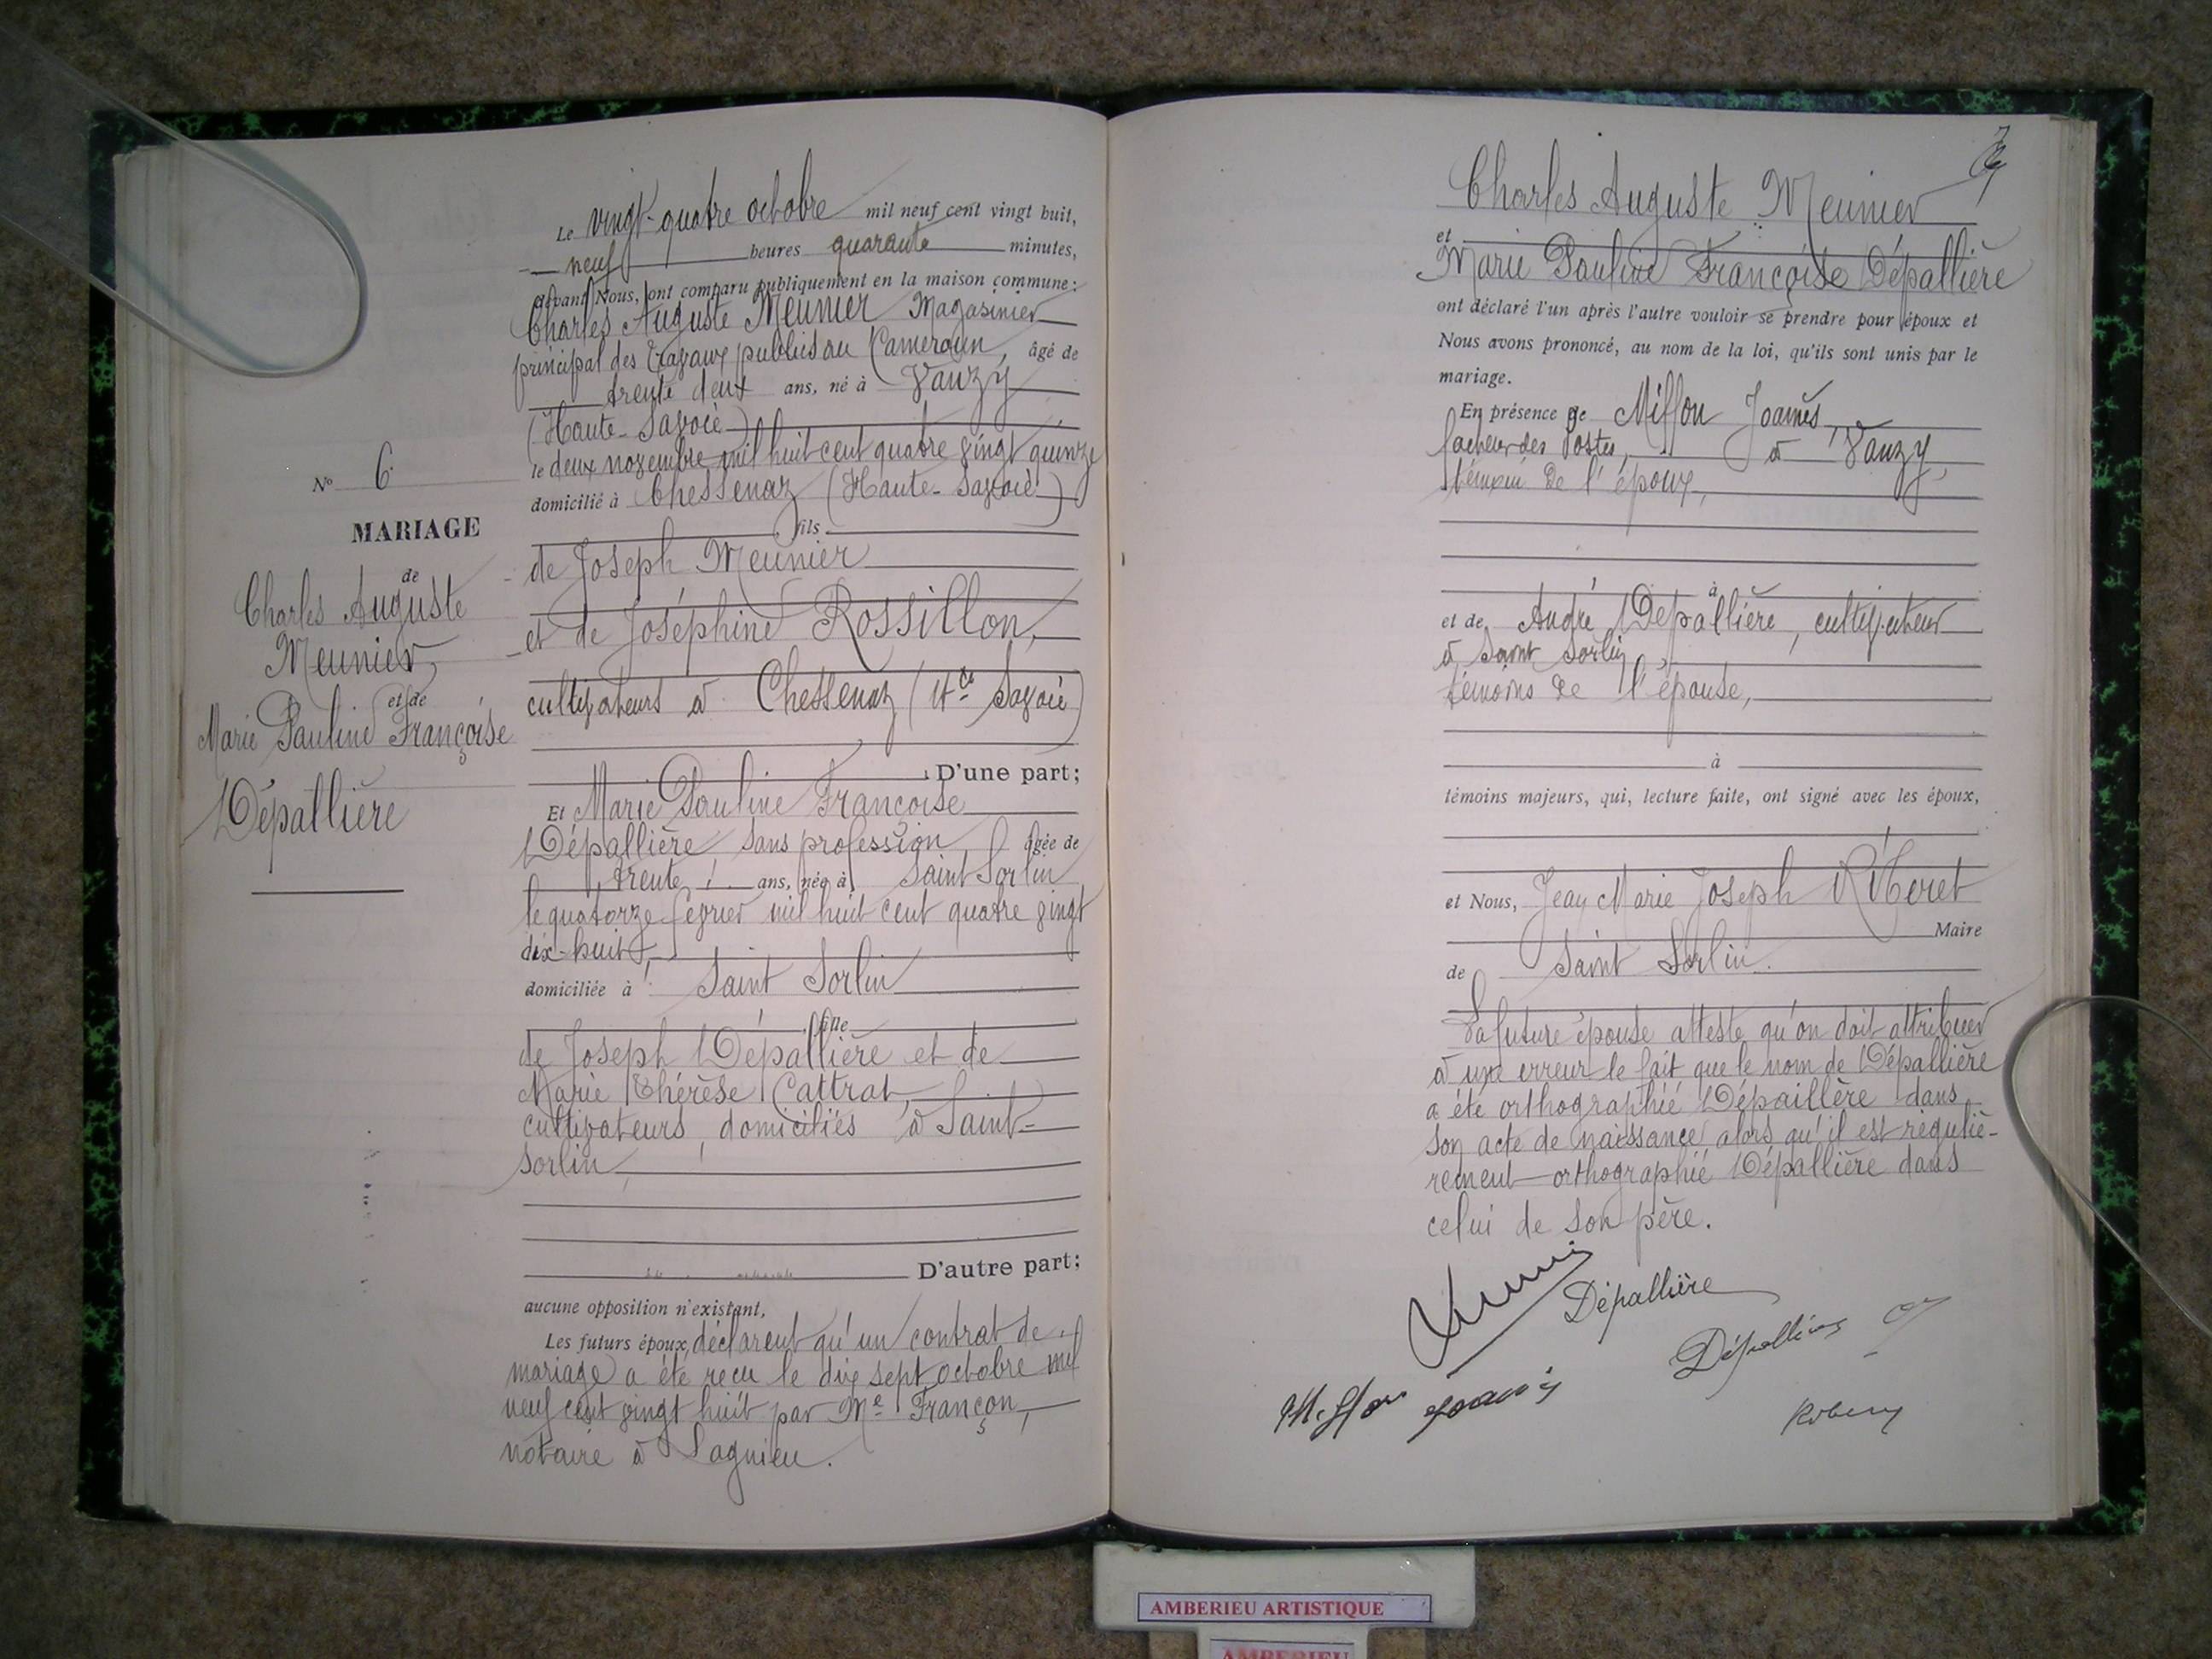 Le vingt-quatre octobre mil neuf cent vingt huit,
neuf heures quarante minutes,
devant Nous, ont comparu publiquement en la maison commune :
Charles Auguste Meunier Magasinier
principal des Travaux publics au Cameroun, âgé de
trente deux ans, né à Vanzy
(Haute-Savoie)
le deux novembre mil huit cent quatre vingt quinze
domicilié à Chessenaz (Haute-Savoie)
fils
de Joseph Meunier
et de Joséphine Rossillon,
cultivateurs à Chessenaz (Hte Savoie)
D'une part;
Et Marie Pauline Françoise
Dépallière sans profession, âgée de
trente ans, née à Saint Sorlin
le quatorze février mil huit cent quatre vingt
dix-huit,
domiciliée à Saint Sorlin
fille
de Joseph Dépallière et de
Marie Thérèse Cattrat,
cultivateurs, domiciliés à Saint-
Sorlin,
D'autre part;
aucune opposition n'existant,
Les futurs époux, déclarent qu'un contrat de
mariage a été reçu le dix sept octobre mil
neuf cent vingt huit par Me Françon,
notaire à Lagnieu.
No 6
MARIAGE
de
Charles Auguste
Meunier,
et de
Marie Pauline Françoise
Dépallière
Charles Auguste Meunier
et
Marie Pauline Françoise Dépallière
ont déclaré l'un après l'autre vouloir se prendre pour époux et
Nous avons prononcé, au nom de la loi, qu'ils sont unis par le
mariage.
En présence de Miffon Joanès,
facteur des Postes, à Vanzy,
témoin de l'époux,
à
et de André Dépallière, cultivateur
à Saint Sorlin,
témoins de l'épouse,
à
témoins majeurs, qui, lecture faite, ont signé avec les époux,
et Nous, Jean Marie Joseph
Maire
de Saint Sorlin.
La future épouse atteste qu'on doit attribuer
à une erreur le fait que le nom de Dépallière
a été orthographié Dépaillère dans
son acte de naissance alors qu'il est réguliè-
rement orthographié Dépallière dans
celui de son père.
Dépallière
Dépallière
Miffon Joanès
AMBERIEU ARTISTIQUE
AMBERIEU